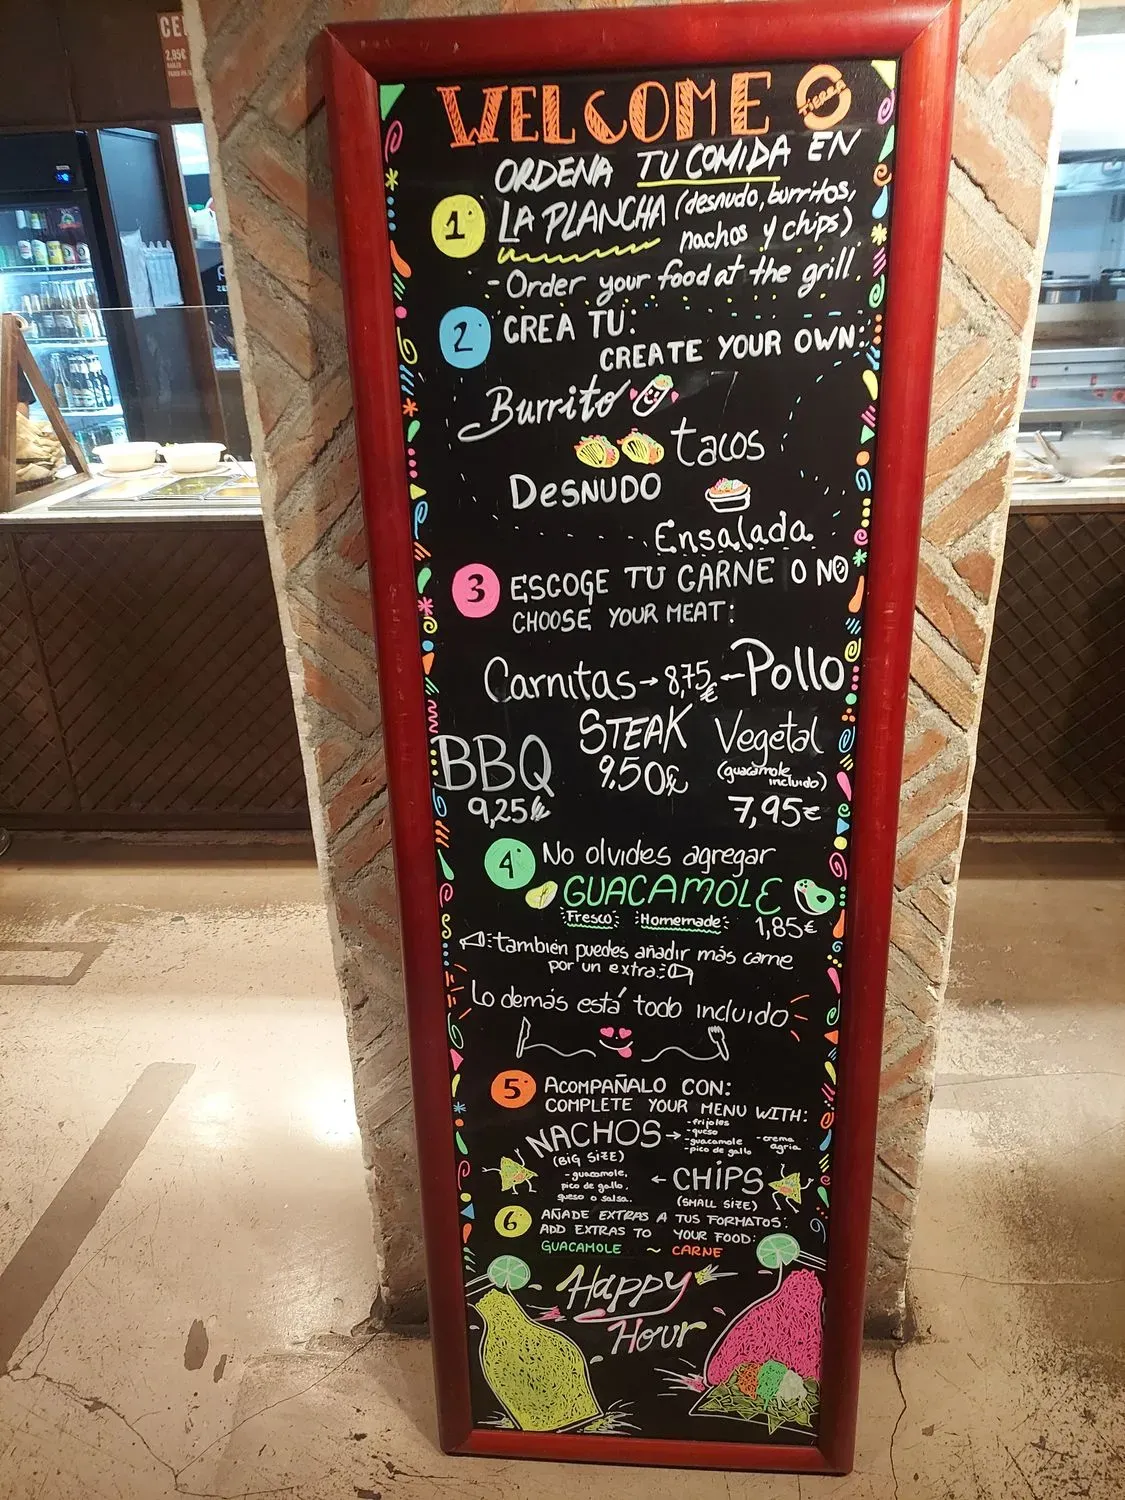 CE
2,95€
WELCOME
TIERRA
ORDENA TU COMIDA EN
1 LA PLANCHA (desnudo, burritos,
nachos y chips)
- Order your food at the grill
2 CREA TU:
CREATE YOUR OWN:
Burrito
tacos
DESNUDO
Ensalada
3 ESCOGE TU CARNE O NO
CHOOSE YOUR MEAT:
Carnitas → 8,75 € ← Pollo
BBQ STEAK Vegetal
9,25 9,50€ (guacamole incluido)
7,95€
4 No olvides agregar
GUACAMOLE
Fresco Homemade 1,85€
también puedes añadir más carne
por un extra:
Lo demás está todo incluido
5 ACOMPAÑALO CON:
COMPLETE YOUR MENU WITH:
NACHOS →
(BIG SIZE)
- frijoles
- queso
- guacamole
- pico de gallo
- crema agria
- guacamole,
pico de gallo,
queso o salsa.
← CHIPS
(SMALL SIZE)
6 AÑADE EXTRAS A TUS FORMATOS:
ADD EXTRAS TO YOUR FOOD:
GUACAMOLE ~ CARNE
Happy
Hour